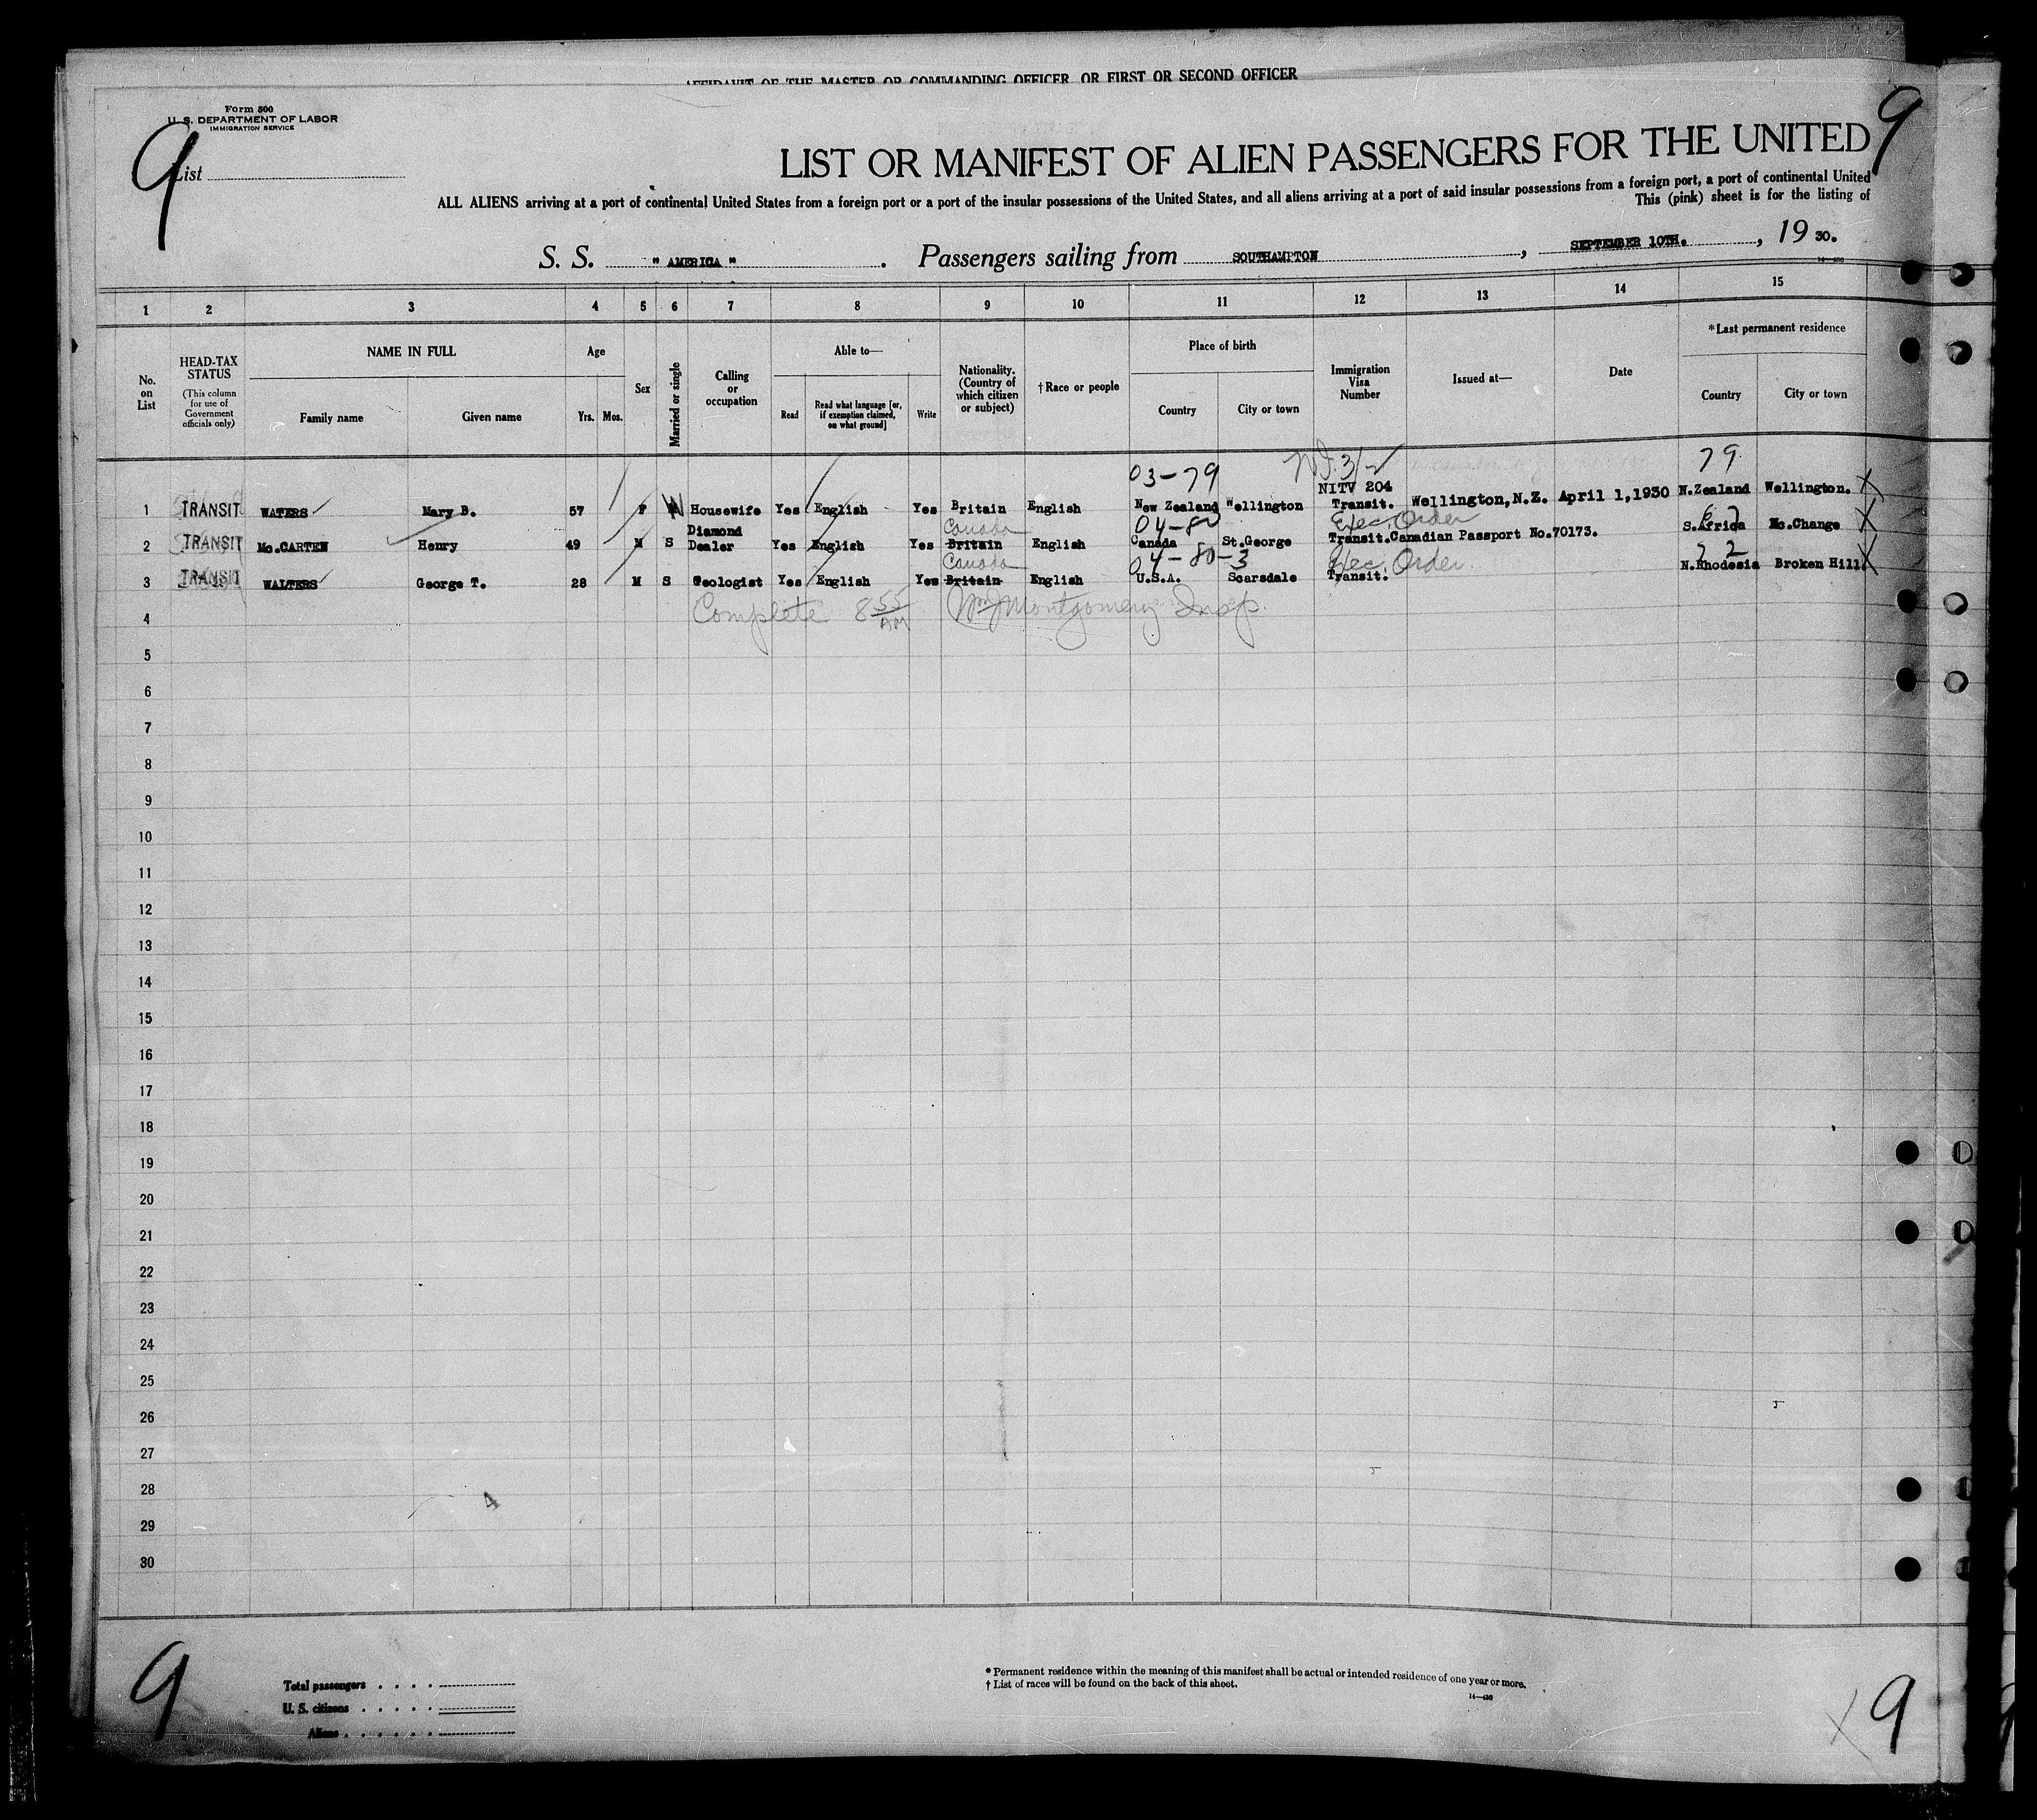 AFFIDAVIT OF THE MASTER OR COMMANDING OFFICER, OR FIRST OR SECOND OFFICER
Form 500
U. S. DEPARTMENT OF LABOR
IMMIGRATION SERVICE
9
9
List
LIST OR MANIFEST OF ALIEN PASSENGERS FOR THE UNITED
ALL ALIENS arriving at a port of continental United States from a foreign port or a port of the insular possessions of the United States, and all aliens arriving at a port of said insular possessions from a foreign port, a port of continental United
This (pink) sheet is for the listing of
S. S. " AMERICA ". Passengers sailing from SOUTHAMPTON, SEPTEMBER 10TH., 19 30.
14—430
1 2 3 4 5 6 7 8 9 10 11 12 13 14 15
No. on List
HEAD-TAX STATUS
(This column for use of Government officials only)
NAME IN FULL
Family name Given name
Age
Yrs. Mos.
Sex
Married or single
Calling or occupation
Able to—
Read
Read what language [or, if exemption claimed, on what ground]
Write
Nationality. (Country of which citizen or subject)
† Race or people
Place of birth
Country City or town
Immigration Visa Number
Issued at—
Date
*Last permanent residence
Country City or town
03-79 79
NITV 204
1 TRANSIT WATERS Mary B. 57 F W Housewife Yes English Yes Britain English New Zealand Wellington Transit. Wellington, N.Z. April 1, 1930 N.Zealand Wellington. X
Canada 04-80 Exec. Order 67
2 TRANSIT Mc.CARTEN Henry 49 M S Diamond Dealer Yes English Yes Britain English Canada St.George Transit. Canadian Passport No.70173. S.Africa Mc.Change X
Canada 04-80-3 Exec. Order. 22
3 TRANSIT WALTERS George T. 28 M S Geologist Yes English Yes Britain English U.S.A. Scarsdale Transit. N.Rhodesia Broken Hill. X
Complete 8 55 AM Wm J Montgomery Insp.
4
5
6
7
8
9
10
11
12
13
14
15
16
17
18
19
20
21
22
23
24
25
26
27
28
29
30
4
9
Total passengers
U. S. citizens
Aliens
* Permanent residence within the meaning of this manifest shall be actual or intended residence of one year or more.
† List of races will be found on the back of this sheet.
14—430
X 9